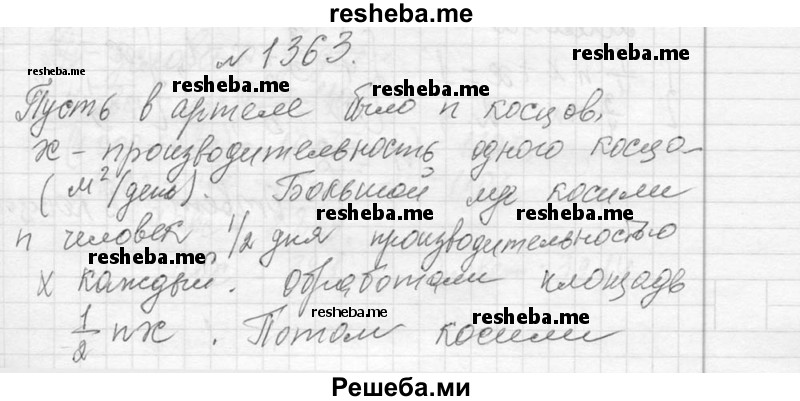 resheba.me
№ 1363.
resheba.me
resheba.me
resheba.me
resheba.me
Пусть в артеле было n косцов,
x - производительность одного косца
(м²/день). Большой луг косили
resheba.me
resheba.me
resheba.me
n человек 1/2 дня производительностью
resheba.me
x каждый. Обработали площадь
resheba.me
resheba.me
resheba.me
1/2 nx. Потом косили
Решеба.ми